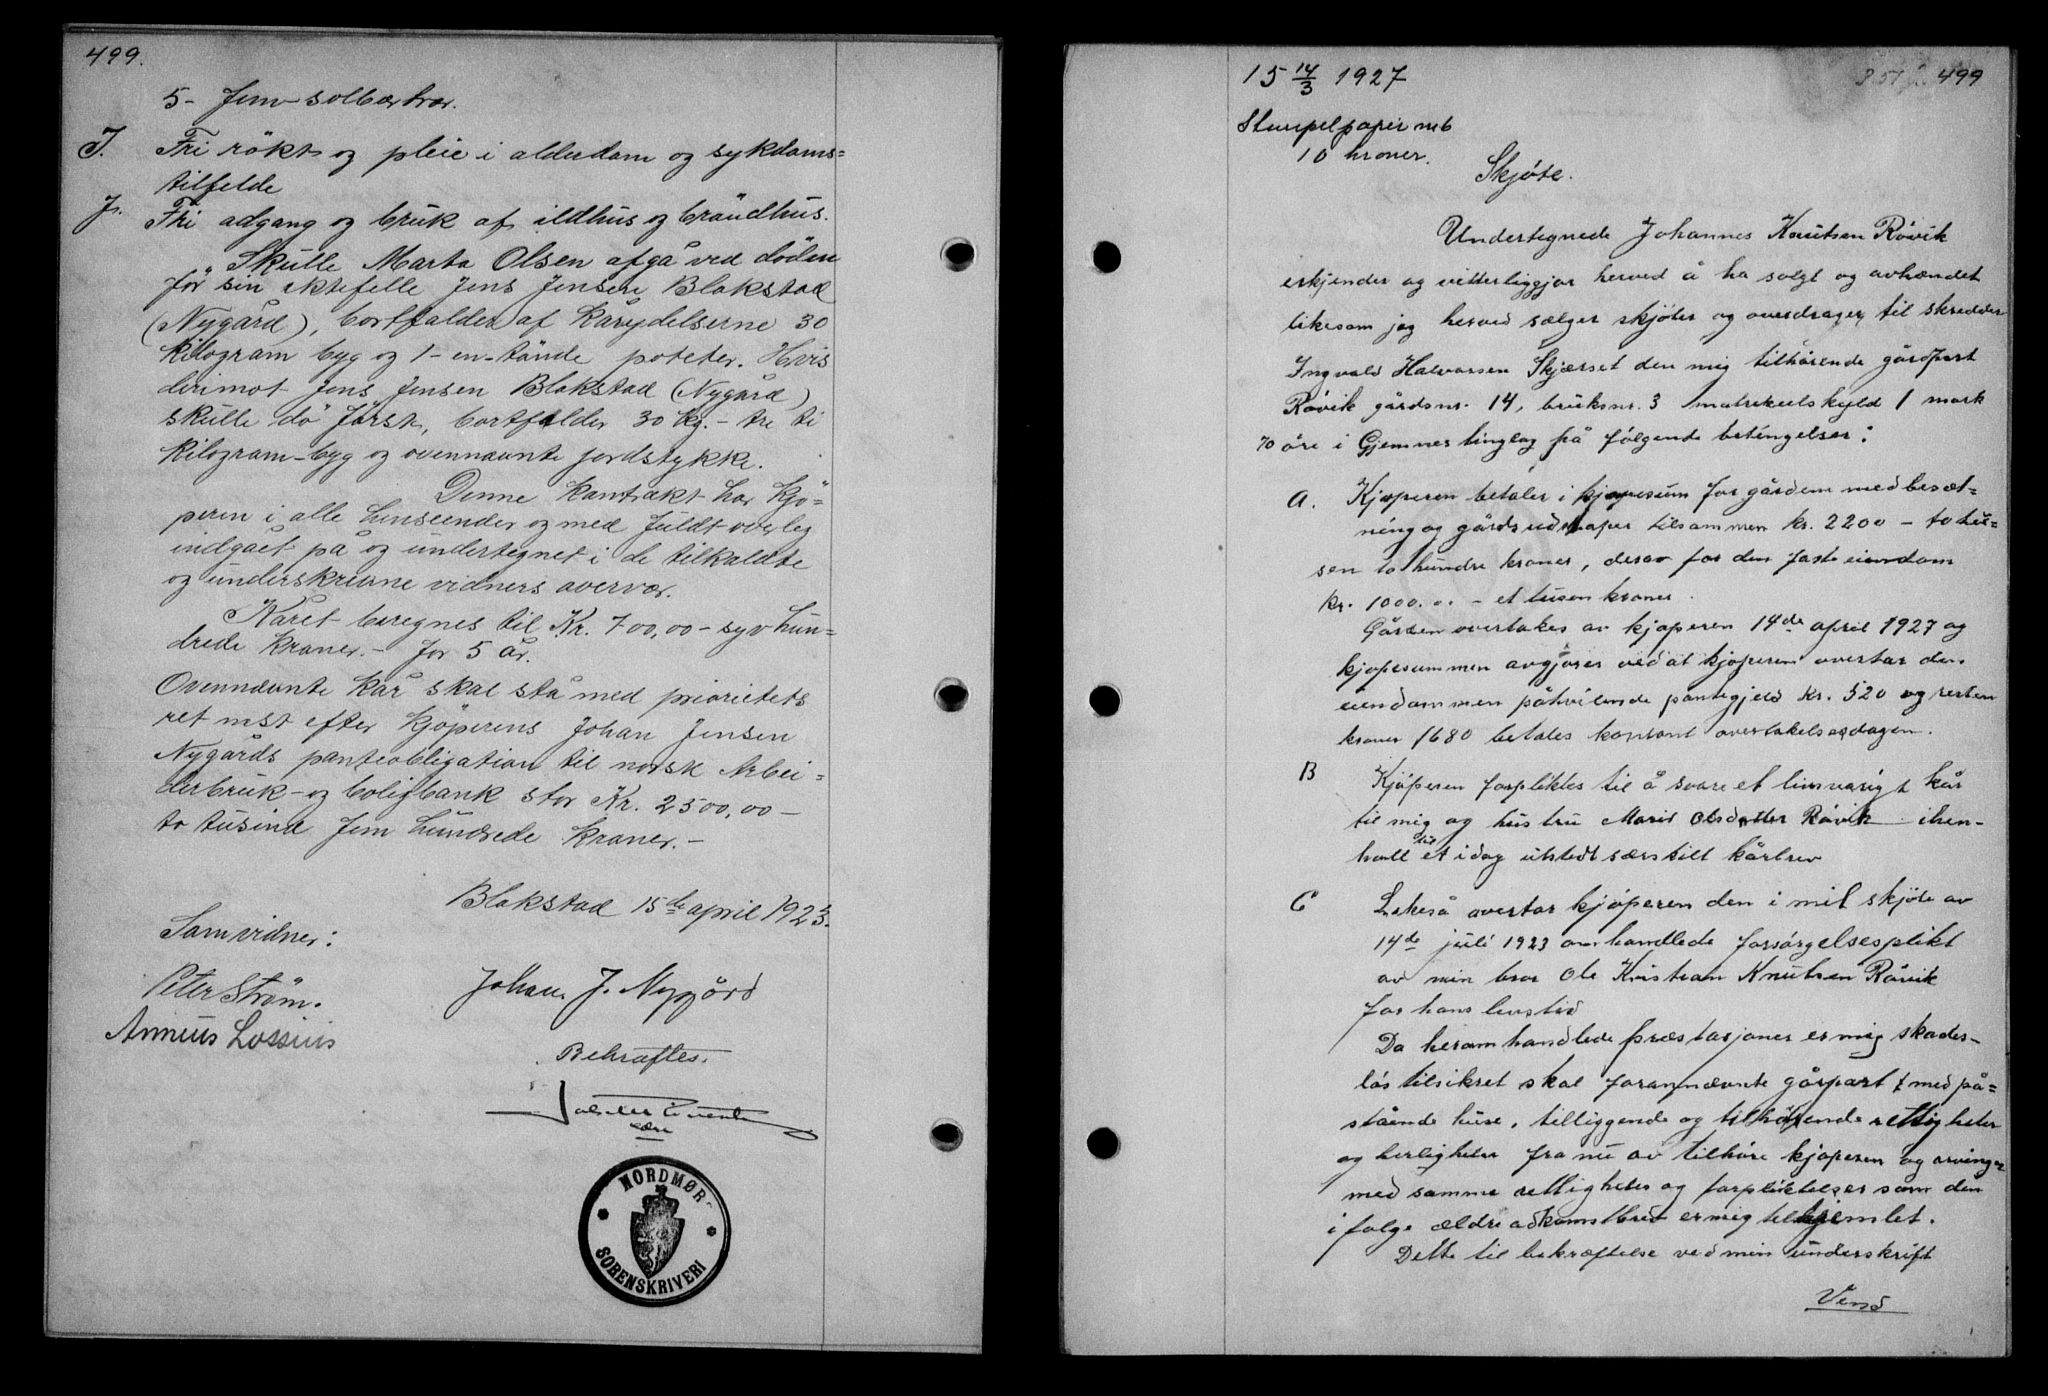 499.
5 - fem solbærtrær.
I. Fri røkt og pleie i alderdom og sykdoms=
tilfelde
J. Fri adgang og bruk af ildhus og brändhus.
Skulle Marta Olsen afgå ved döden
för sin ektefelle Jens Jensen Blakstad
(Nygård), bortfalder af kårydelserne 30
kilogram byg og 1 - en - tönde poteter. Hvis
derimot Jens Jensen Blakstad (Nygård)
skulle dö först, bortfalder 30 kg. - tre ti
kilogram - byg og ovennævnte jordstykke.
Denne kontrakt har kjö=
peren i alle henseender og med fuldt overleg
indgået på og undertegnet i de tilkaldte
og underskrevne vidners overvær.
Kåret beregnes til Kr. 700,00 - syv hun=
drede kroner. - for 5 år.
Ovennævnte kår skal stå med priorietets
ret næst efter kjöperens Johan Jensen
Nygårds panteobligation til norsk Arbei=
derbruk - og boligbank stor Kr. 2500,00 -
to tusind fem hundrede kroner. -
Blakstad 15de april 1923.
Som vidner:
Peter Ström.
Johan J. Nygård
Annæus Lossius
Bekræftes.
NORDMØRE
SORENSKRIVERI
15 14/3 1927 499
Stempelpapir
10 kroner.
Skjøte.
Undertegnede Johannes Knutsen Røvik
erkjender og vitterliggjør herved å ha solgt og avhændet
likesom jeg herved sælger skjøter og overdrager til skrædder
Ingvald Halvorsen Skjærset den mig tilhørende gårdpart
Røvik gårdsnr. 14, bruksnr. 3 matrikulskyld 1 mark
70 øre i Gjemnes tinglag på følgende betingelser:
A. Kjøperen betaler i kjøpesum for gården med besæt=
ning og gårdsredskaper tilsammen kr. 2200 - to tu=
sen to hundre kroner, derav for den faste eiendom
kr. 1000.00 - et tusen kroner.
Gården overtakes av kjøperen 14de april 1927 og
kjøpesummen avgjøres ved at kjøperen overtar den
eiendommen påhvilende pantegjeld kr. 520 og resten
kroner 1680 betales kontant overtakelsesdagen.
B Kjøperen forpliktes til å svare et livsvarigt kår
til mig og hustru Marit Olsdatter Røvik i hen-
hold til et idag utstedt særskilt kårbrev
C Likeså overtar kjøperen den i mit skjøte av
14de juli 1923 omhandlede forsørgelsesplikt
av min bror Ole Kristian Knutsen Røvik
for hans livstid
Da heromhandlede præstasjoner er mig skades-
løs tilsikret skal forannævnte gårpart med på=
stående huse, tilliggende og tilhørende rettigheter
og herligheter fra nu av tilhøre kjøperen og arvinger
med samme rettigheter og forpliktelser som den
i følge ældre adkomstbrev er mig tilhjemlet.
Dette til bekræftelse ved min underskrift
Vend